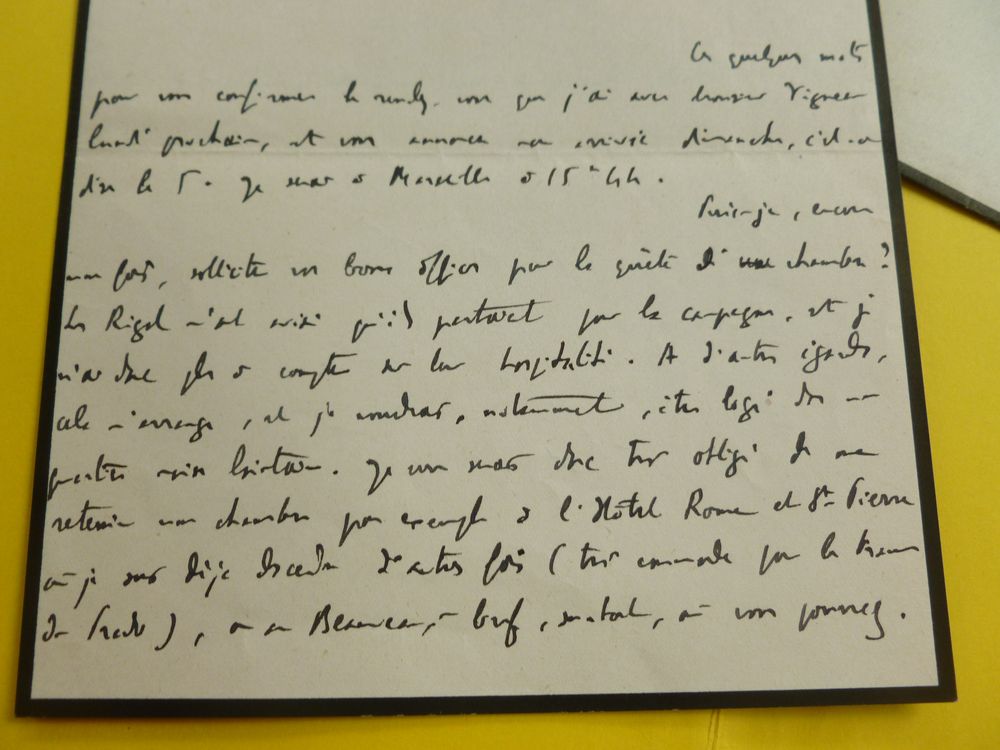 Ces quelques mots
pour vous confirmer le rendez-vous que j'ai avec Monsieur Vigneau
lundi prochain, et vous annoncer mon arrivée dimanche, c'est-à-
dire le 5. Je serai à Marseille à 15 h 44.
Puis-je, encore
une fois, solliciter vos bons offices pour la quête d'une chambre ?
Les Rigal m'ont avisé qu'ils partaient pour la campagne, et je
n'ai donc plus à compter sur leur hospitalité. A d'autres égards,
cela m'arrange, et je voudrais, notamment, être logé dans un
quartier moins lointain. Je vous serais donc très obligé de me
retenir une chambre par exemple à l'Hôtel Rome et St Pierre
où je suis déjà descendu d'autres fois (très commode pour le tramway
du Prado), ou au Beauveau, - bref, surtout, où vous pourrez.